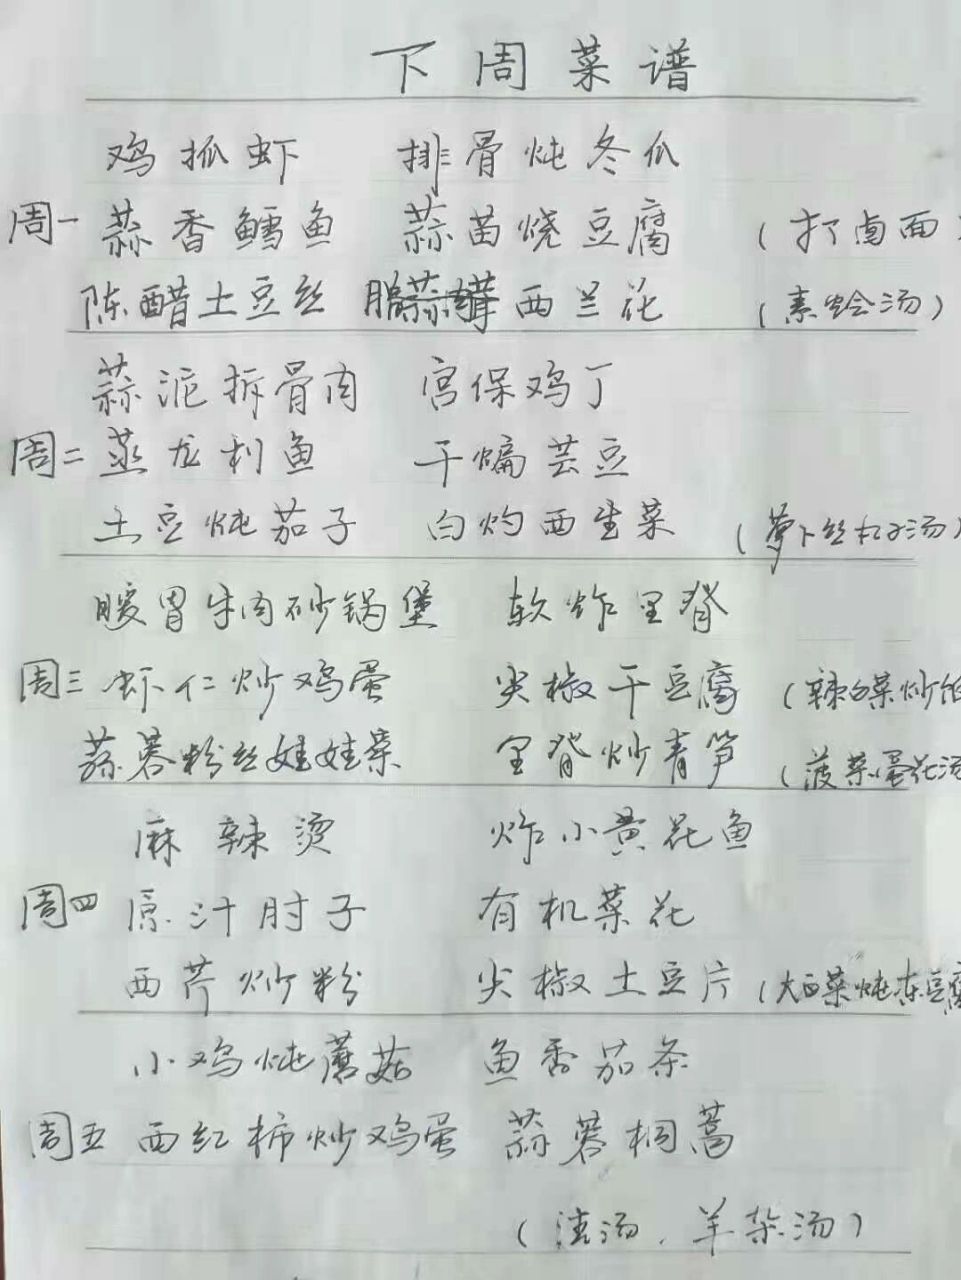 下周菜谱
鸡抓虾 排骨炖冬瓜
周一 蒜香鳕鱼 蒜苗烧豆腐 (打卤面
陈醋土豆丝 西兰花 (素烩汤)
蒜泥拆骨肉 宫保鸡丁
周二 蒸龙利鱼 干煸芸豆
土豆炖茄子 白灼西生菜 (萝卜丝丸子汤)
暖胃牛肉砂锅堡 软炸里脊
周三 虾仁炒鸡蛋 尖椒干豆腐 (辣白菜炒饼
蒜蓉粉丝娃娃菜 里脊炒青笋 (菠菜蛋花汤
麻辣烫 炸小黄花鱼
周四 原汁肘子 有机菜花
西芹炒粉 尖椒土豆片 (大白菜炖冻豆腐
小鸡炖蘑菇 鱼香茄条
周五 西红柿炒鸡蛋 蒜蓉桐蒿
(渣汤,羊杂汤)